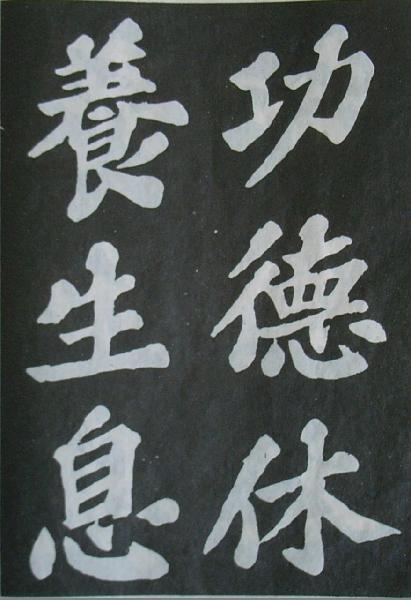 功德休
養生息